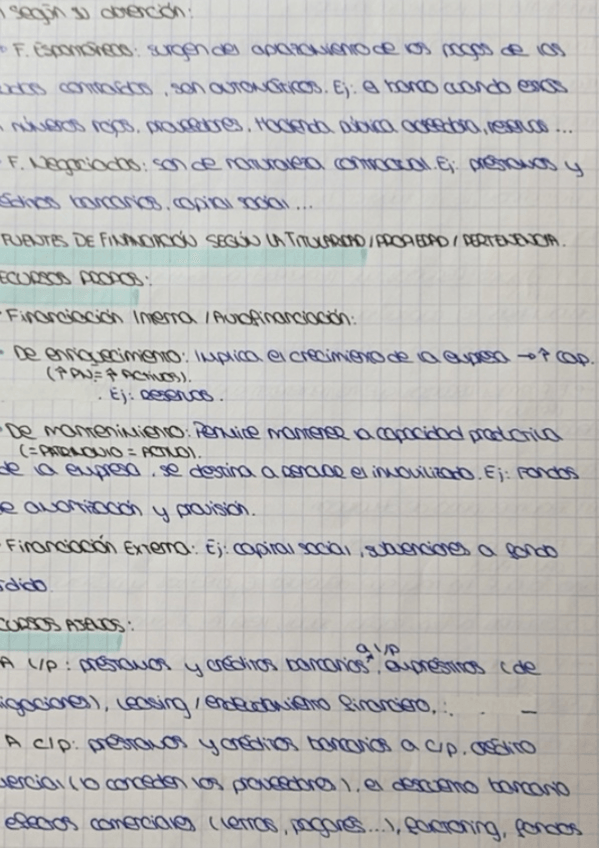 según su obtención:
· F. Espontáneas: surgen del aplazamiento de los pagos de los
contraídos, son automáticos. Ej: el banco cuando estás
números rojos, proveedores, Hacienda pública acreedora, reservas ...
· F. Negociadas: son de naturaleza contractual. Ej: préstamos y
bancarios, capital social ...
FUENTES DE FINANCIACIÓN SEGÚN LA TITULARIDAD / PROPIEDAD / PERTENENCIA.
ECURSOS PROPIOS:
Financiación Interna / Autofinanciación:
· De enriquecimiento: Implica el crecimiento de la empresa → ↑ cap.
(↑ PN = ↑ ACTIVOS).
. Ej: reservas.
De mantenimiento: Permite mantener la capacidad productiva
(= PATRIMONIO = ACTIVO).
de la empresa, se destina a reponer el inmovilizado. Ej: Fondos
e amortización y provisión.
Financiación Externa: Ej: capital social, subvenciones a fondo
rdido.
CURSOS AJENOS:
a l/p
A l/p: préstamos y créditos bancarios, empréstitos (de
igaciones), leasing / arrendamiento financiero, .. . –
A c/p: préstamos y créditos bancarios a c/p, crédito
ercial (lo conceden los proveedores), el descuento bancario
efectos comerciales (letras, pagarés...), factoring, fondos